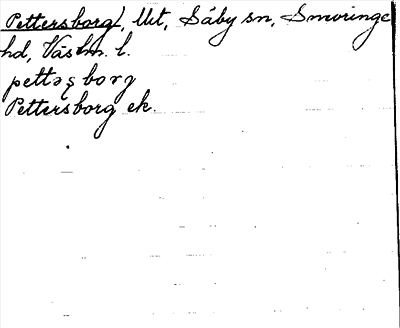 Pettersborg, Utt, Säby sn, Snevringe
hd, Västm. l.
pettəʂborg
Pettersborg ek.